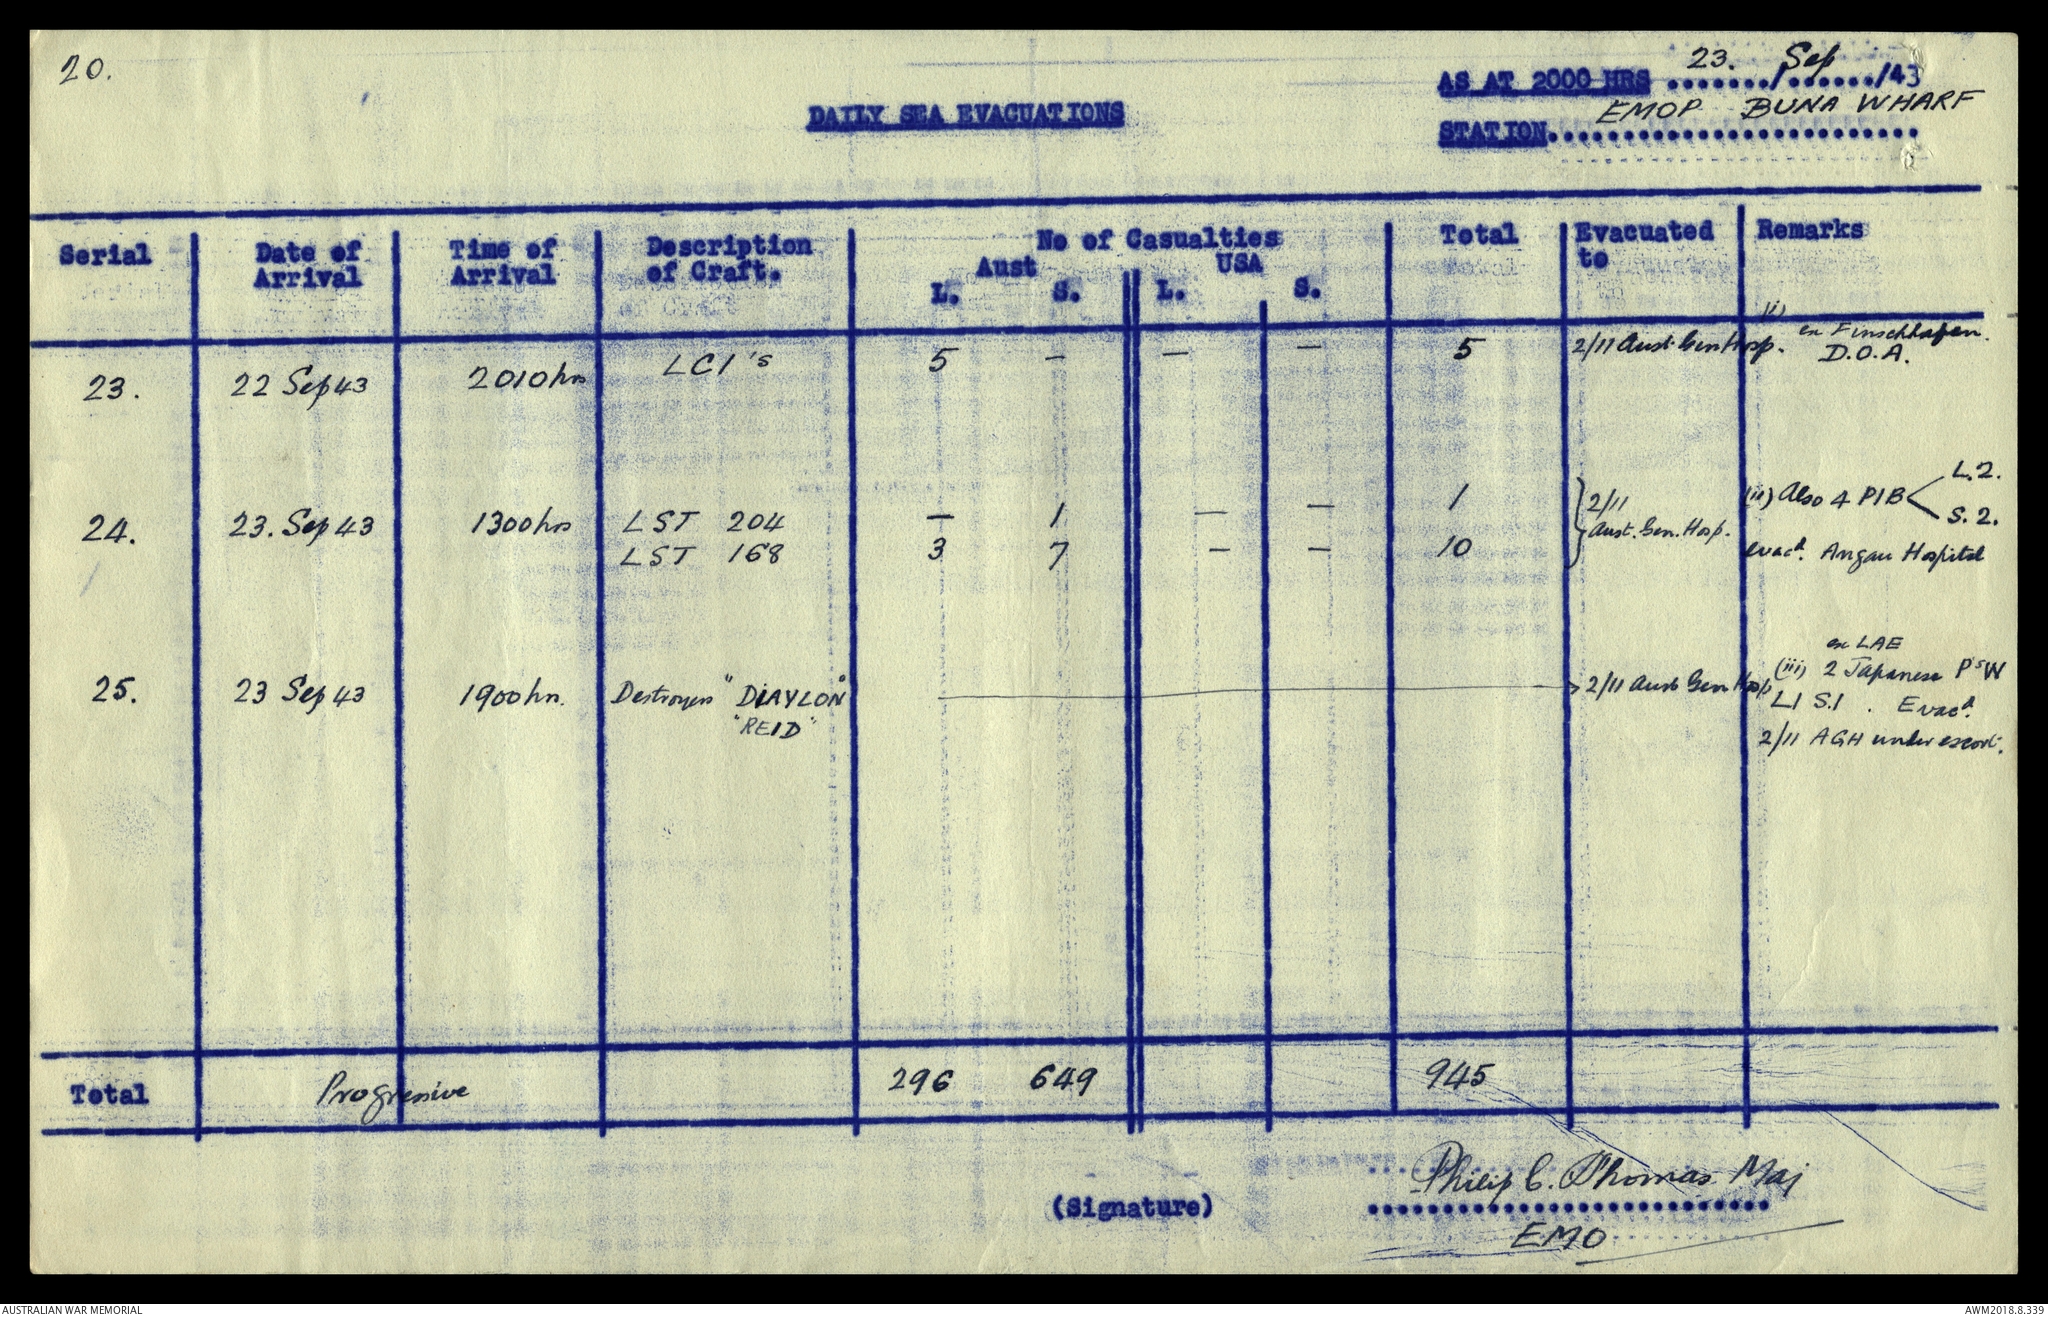 20.
23. Sep
AS AT 2000 HRS ......./......./43
DAILY SEA EVACUATIONS
EMOP BUNA WHARF
STATION.........................
Serial Date of Arrival Time of Arrival Description of Craft. No of Casualties Aust L. S. USA L. S. Total Evacuated to Remarks
23. 22 Sep 43 2010 hrs LCI's 5 - - - 5 2/11 Aust Gen Hosp. (i) ex Finschhafen.
D.O.A.
24. 23. Sep 43 1300 hrs LST 204 - 1 - - 1 2/11 (ii) Also 4 PIB L.2.
S. 2.
LST 168 3 7 - - 10 Aust. Gen. Hosp. evacd. Angau Hospital
ex LAE
25. 23 Sep 43 1900 hrs. Destroyers "DIAYLON" 2/11 Aust Gen Hosp (iii) 2 Japanese P'sW
"REID" L1 S.1. Evacd.
2/11 AGH under escort.
Total Progressive 296 649 945
(Signature) Philip C. Thomas Maj
EMO
AUSTRALIAN WAR MEMORIAL
AWM2018.8.339